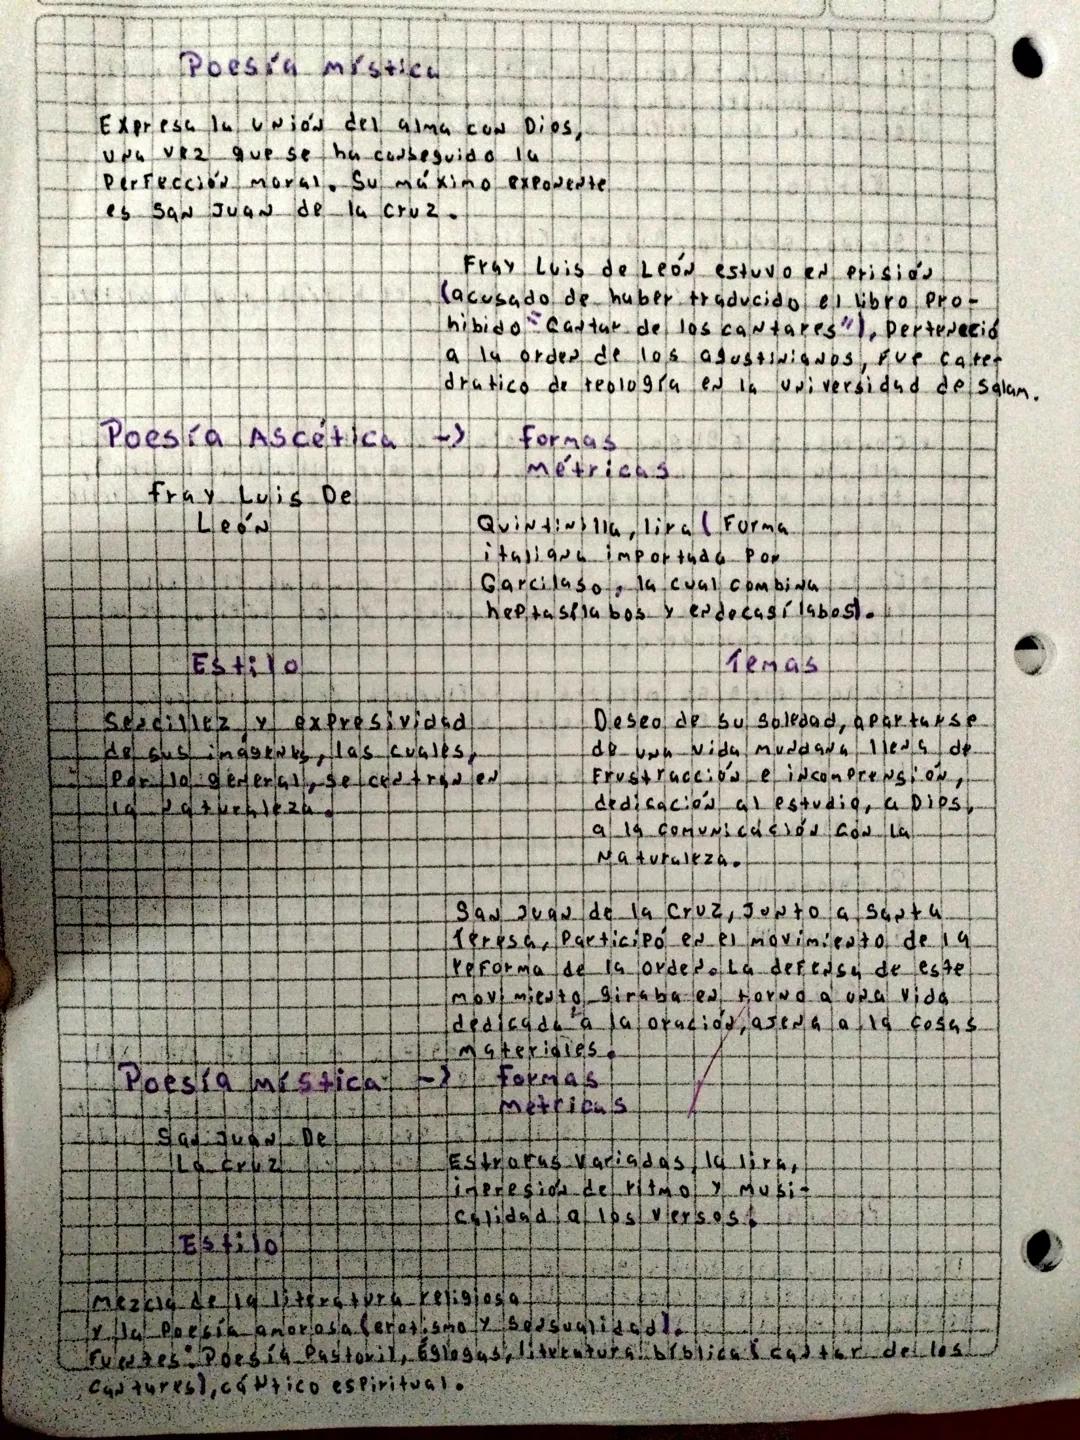 Poesía mística
Expresa la unión del alma con Dios,
una vez que se ha conseguido la
Perfección moral. Su máximo exponente
es San Juan de la Cruz.
Fray Luis de León estuvo en prisión
(acusado de haber traducido el libro Pro-
hibido "Cantar de los cantares"), Perteneció
a la orden de los agustinianos, Fue cate-
dratico de teología en la universidad de Salam.
Poesía Ascética -> formas
métricas
Fray Luis De
León
Quintinilla, lira ( Forma
italiana importada Por
Garcilaso, la cual combina
heptasílabos y endecasílabos).
Estilo
Temas
Sencillez y expresividad
de sus imágenes, las cuales,
Por lo general, se centran en
la naturaleza.
Deseo de su soledad, apartarse
de una vida mundana llena de
Frustracción e incomprensión,
dedicación al estudio, a Dios,
a la comunicación con La
Naturaleza.
San Juan de la Cruz, Junto a Santa
Teresa, Participó en el movimiento de la
reforma de la orden. La defensa de este
movimiento giraba en torno a una vida
dedicada a la oración, ajena a la cosas
materiales.
Poesía mística -> formas
metricas
San Juan De
La Cruz
Estrofas variadas, la lira,
impresión de ritmo y musi-
calidad a los versos.
Estilo
Mezcla de la literatura religiosa
y la Poesía amorosa (erotismo y sensualidad).
Fuentes: Poesía Pastoril, Églogas, literatura bíblica (cantar de los
cantares), cántico espiritual.